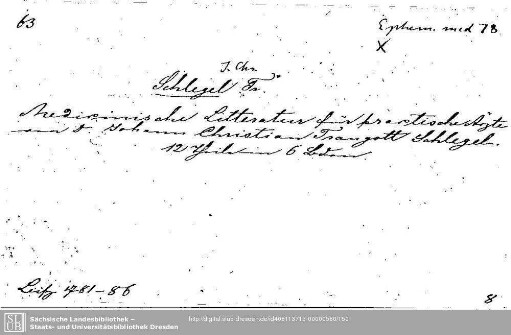 63
Ephem. med 78
X
J. Chr.
Schlegel Tr.
Medicinische Litteratur für practische Ärzte
von D Johann Christian Traugott Schlegel.
12 Theile in 6 Bdn.
Leipz 1781-86
8
SLUB
Sächsische Landesbibliothek –
Staats- und Universitätsbibliothek Dresden